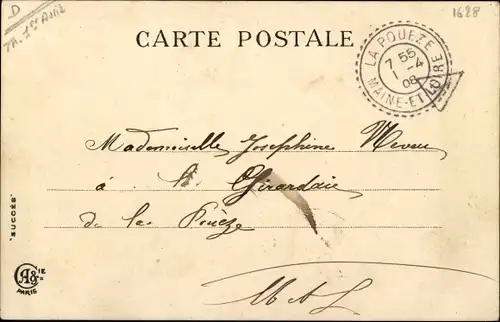 D
1er Avril
1628
CARTE POSTALE
LA POUEZE
7 55
1 -4
08
MAINE-ET-LOIRE
Mademoiselle Josephine Neveu
à la Girardaie
de la Pouëze
M A L
"SUCCÈS"
CIE
PARIS